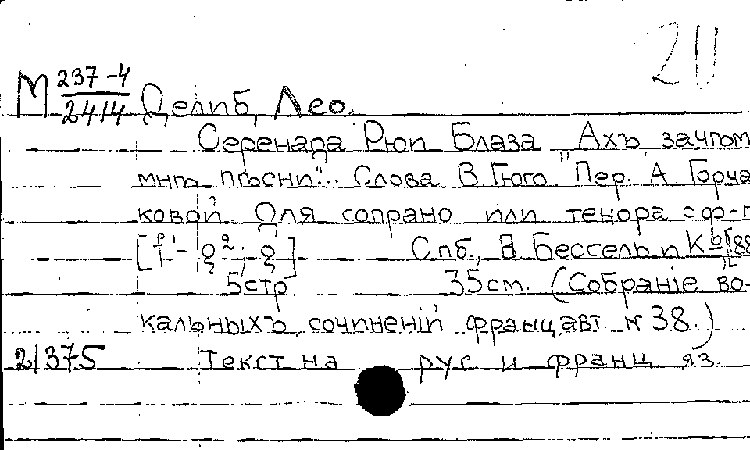 20
М 237-4/2414 Делиб, Лео.
Серенада Рюи Блаза "Ахъ зачѣмъ
мнѣ пѣсни". Слова В. Гюго Пер. А Горча-
ковой Для сопрано или тенора с ф-п
[f¹ - g²; g]
Спб., В. Бессель и К°, [188
5стр 35см. (Собраніе во-
кальныхъ сочиненій франц авт. N 38.)
21375 Текст на рус и франц яз.